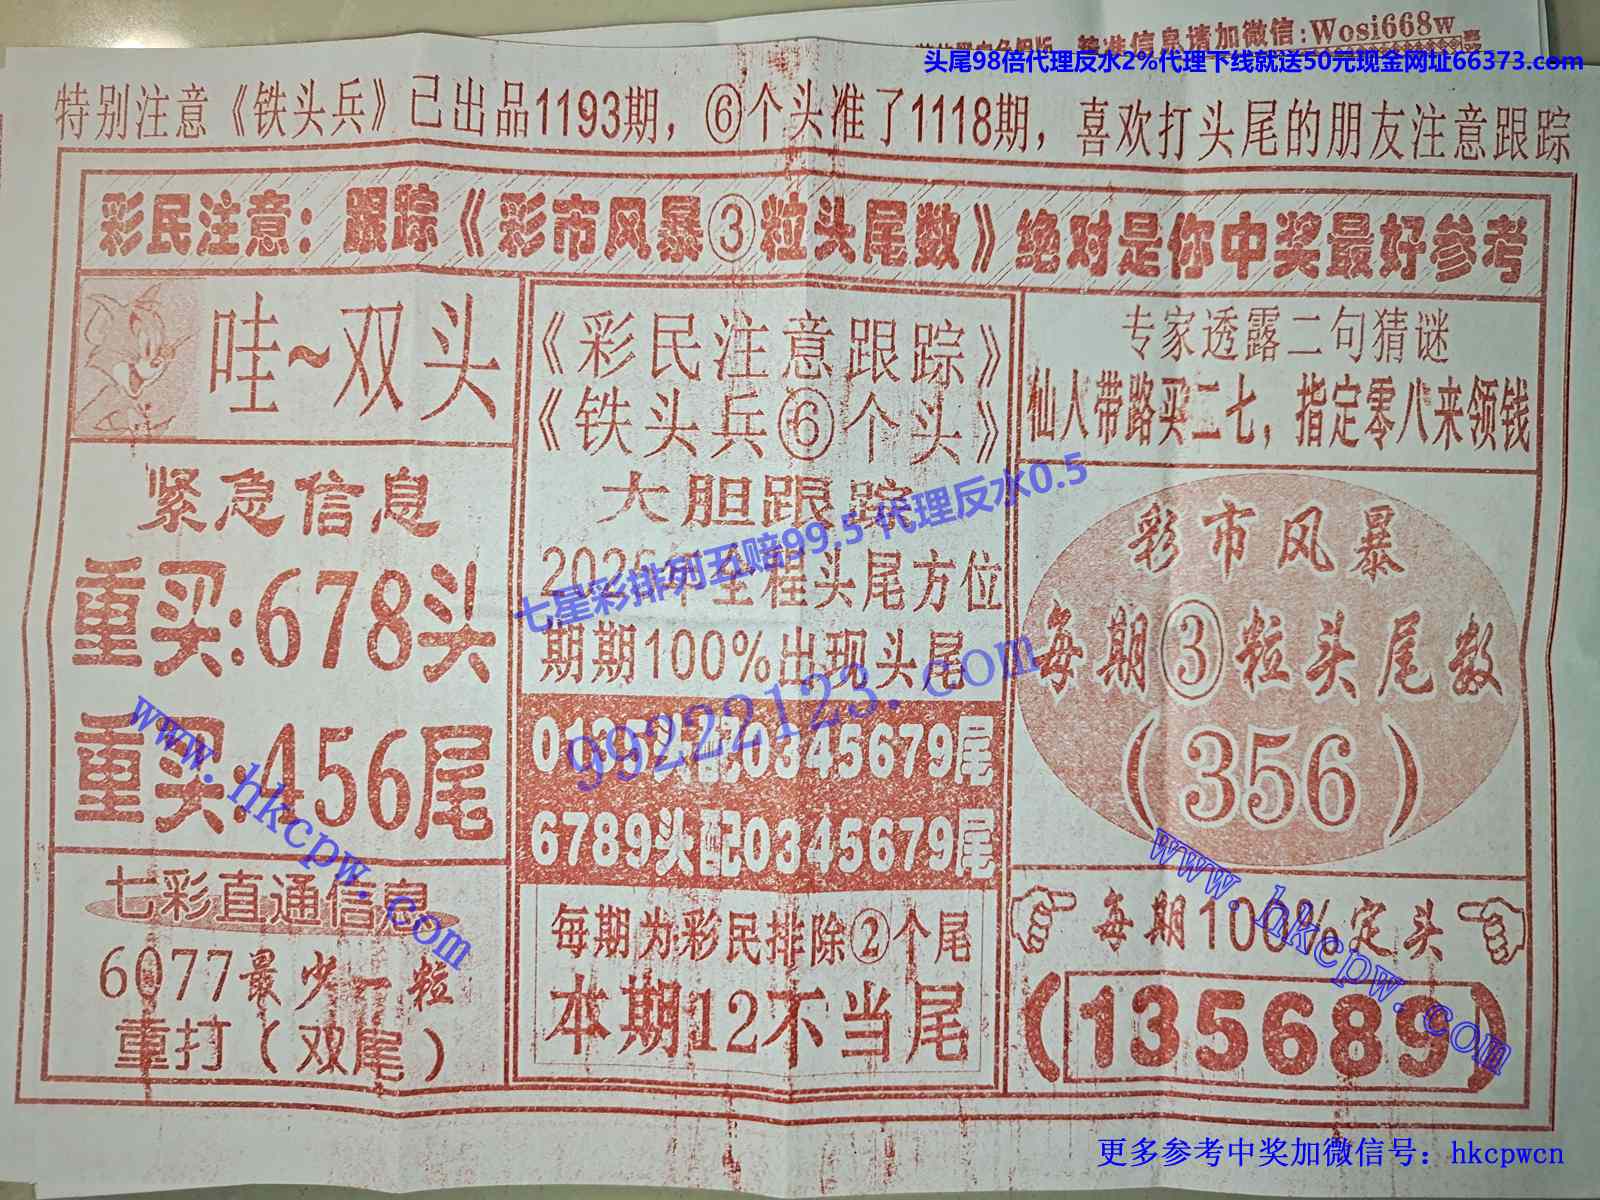 精准信息请加微信:Wosi668w
头尾98倍代理反水2%代理下线就送50元现金网址66373.com
特别注意《铁头兵》已出品1193期，⑥个头准了1118期，喜欢打头尾的朋友注意跟踪
彩民注意：跟踪《彩市风暴③粒头尾数》绝对是你中奖最好参考
哇~双头
紧急信息
重买:678头
重买:456尾
七彩直通信息
6077最少一粒
重打（双尾）
《彩民注意跟踪》
《铁头兵⑥个头》
大胆跟踪
七星彩排列五赔99.5 代理反水0.5
2026年全程头尾方位
期期100%出现头尾
99222123.com
配0345679尾
6789头配0345679尾
每期为彩民排除②个尾
本期12不当尾
专家透露二句猜谜
仙人带路买二七，指定零八来领钱
彩市风暴
每期③粒头尾数
（356）
每期100%定头
（135689）
www.hkcpw.com
www.hkcpw.com
更多参考中奖加微信号：hkcpwcn